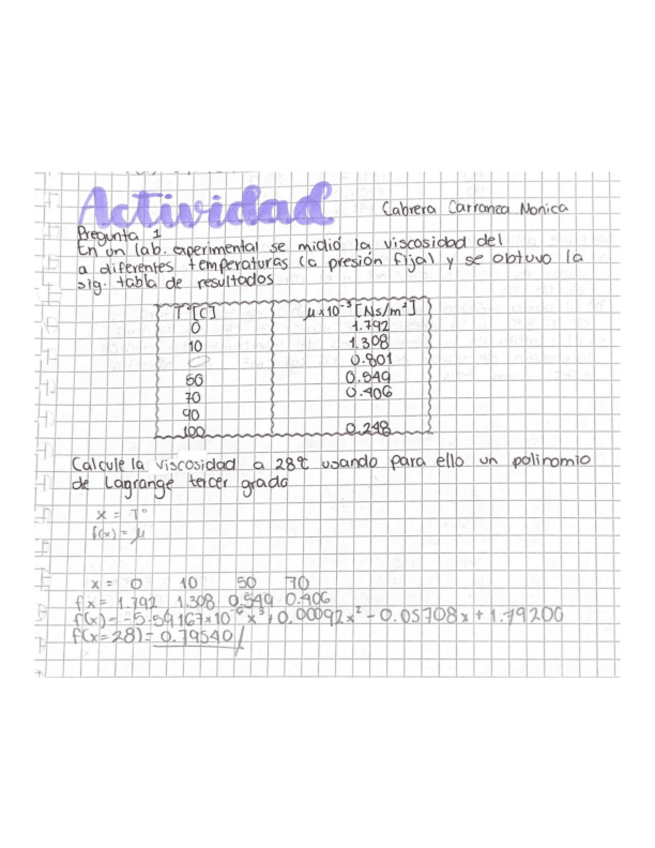 Actividad
Cabrera Carranza Monica
Pregunta 1
En un lab. experimental se midió la viscosidad del
a diferentes temperaturas (a presión fija) y se obtuvo la
sig. tabla de resultados
T°[C] μx10⁻³[Ns/m²]
0 1.792
10 1.308
0.801
50 0.549
70 0.406
90
100 0.248
Calcule la viscosidad a 28°C usando para ello un polinomio
de Lagrange tercer grado
x = T°
f(x) = μ
x = 0 10 50 70
fx = 1.792 1.308 0.549 0.406
f(x) = -5.59167x10⁻⁶x³+0.00092x²-0.05708x+1.79200
f(x=28)= 0.79540